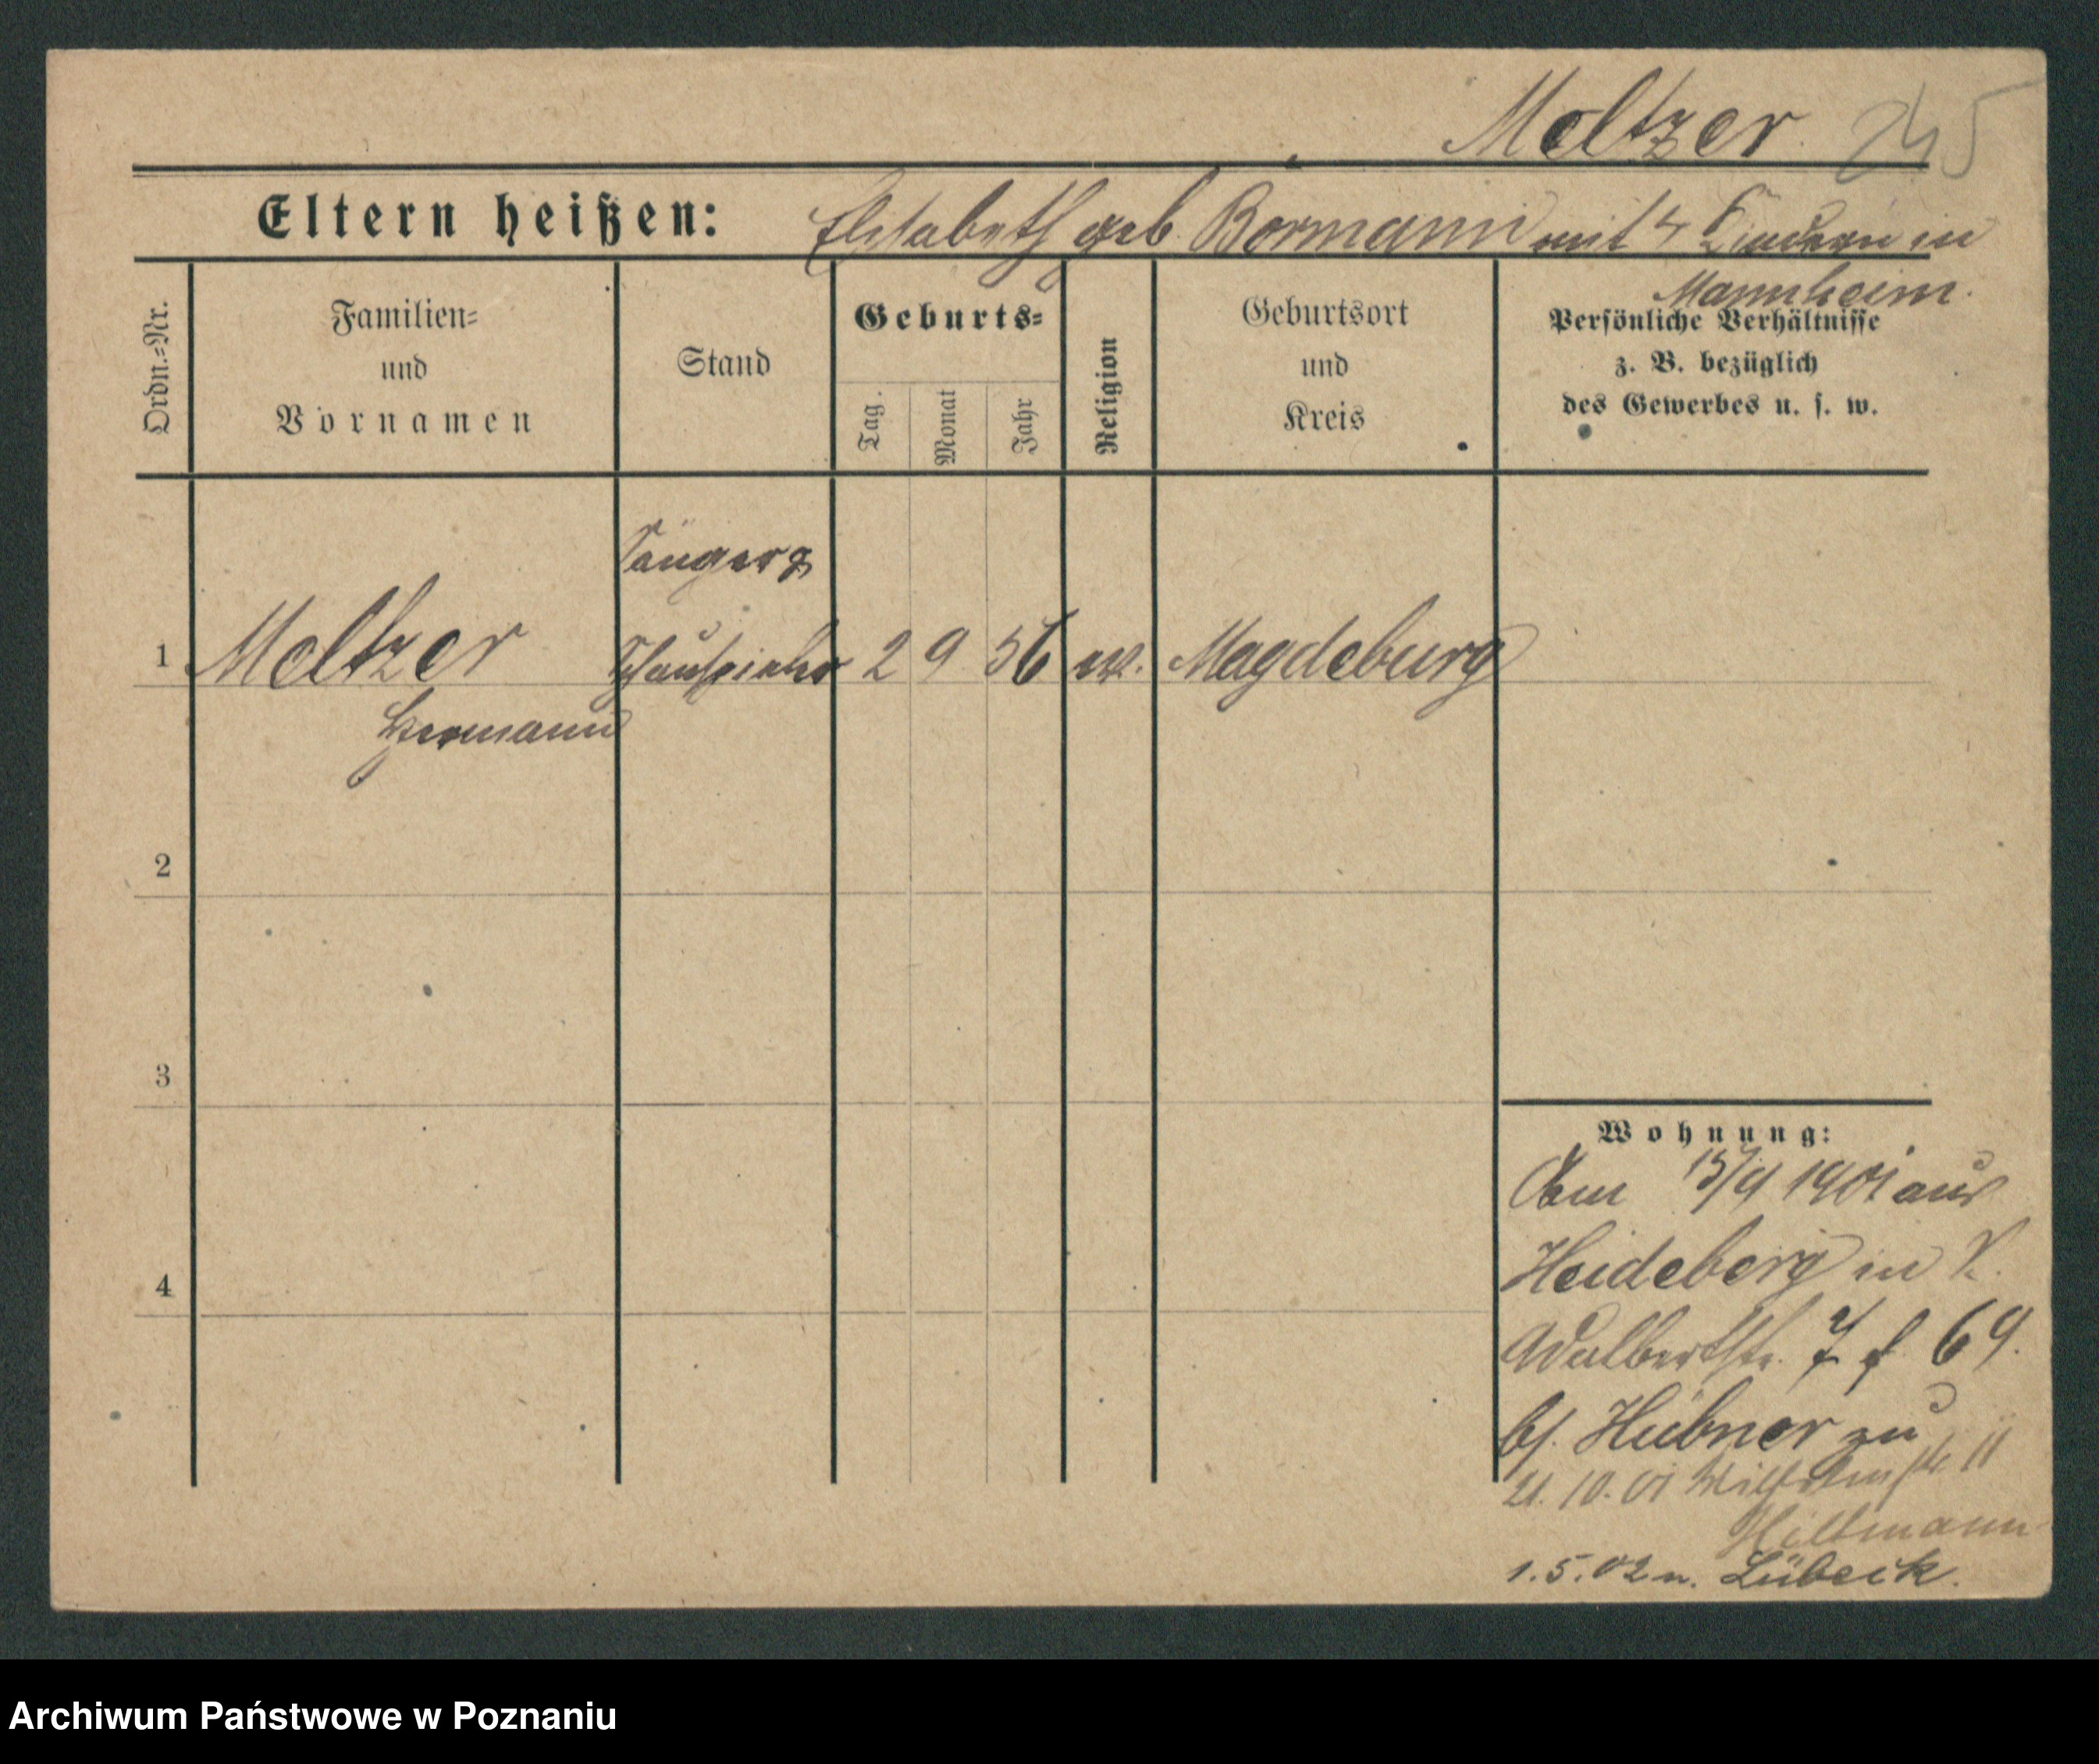 Meltzer. 245
Eltern heißen: Elisabeth geb. Bormann mit 4 Kindern in
Mannheim.
Ordn.=Nr.
Familien=
und
Vornamen
Stand
Geburts=
Tag.
Monat
Jahr
Religion
Geburtsort
und
Kreis
Persönliche Verhältnisse
z. B. bezüglich
des Gewerbes u. s. w.
Sänger &
1 Meltzer Schauspieler 2 9 56 ev. Magdeburg
Hermann
2
3
4
Wohnung:
Am 15/9 1901 aus
Heideberg in
Adalbertstr. 7 f 69.
bei Hübner zu
21.10.01 Wilhelmstr. 11
Hiltmann
1.5.02 n. Lübeck.
Archiwum Państwowe w Poznaniu